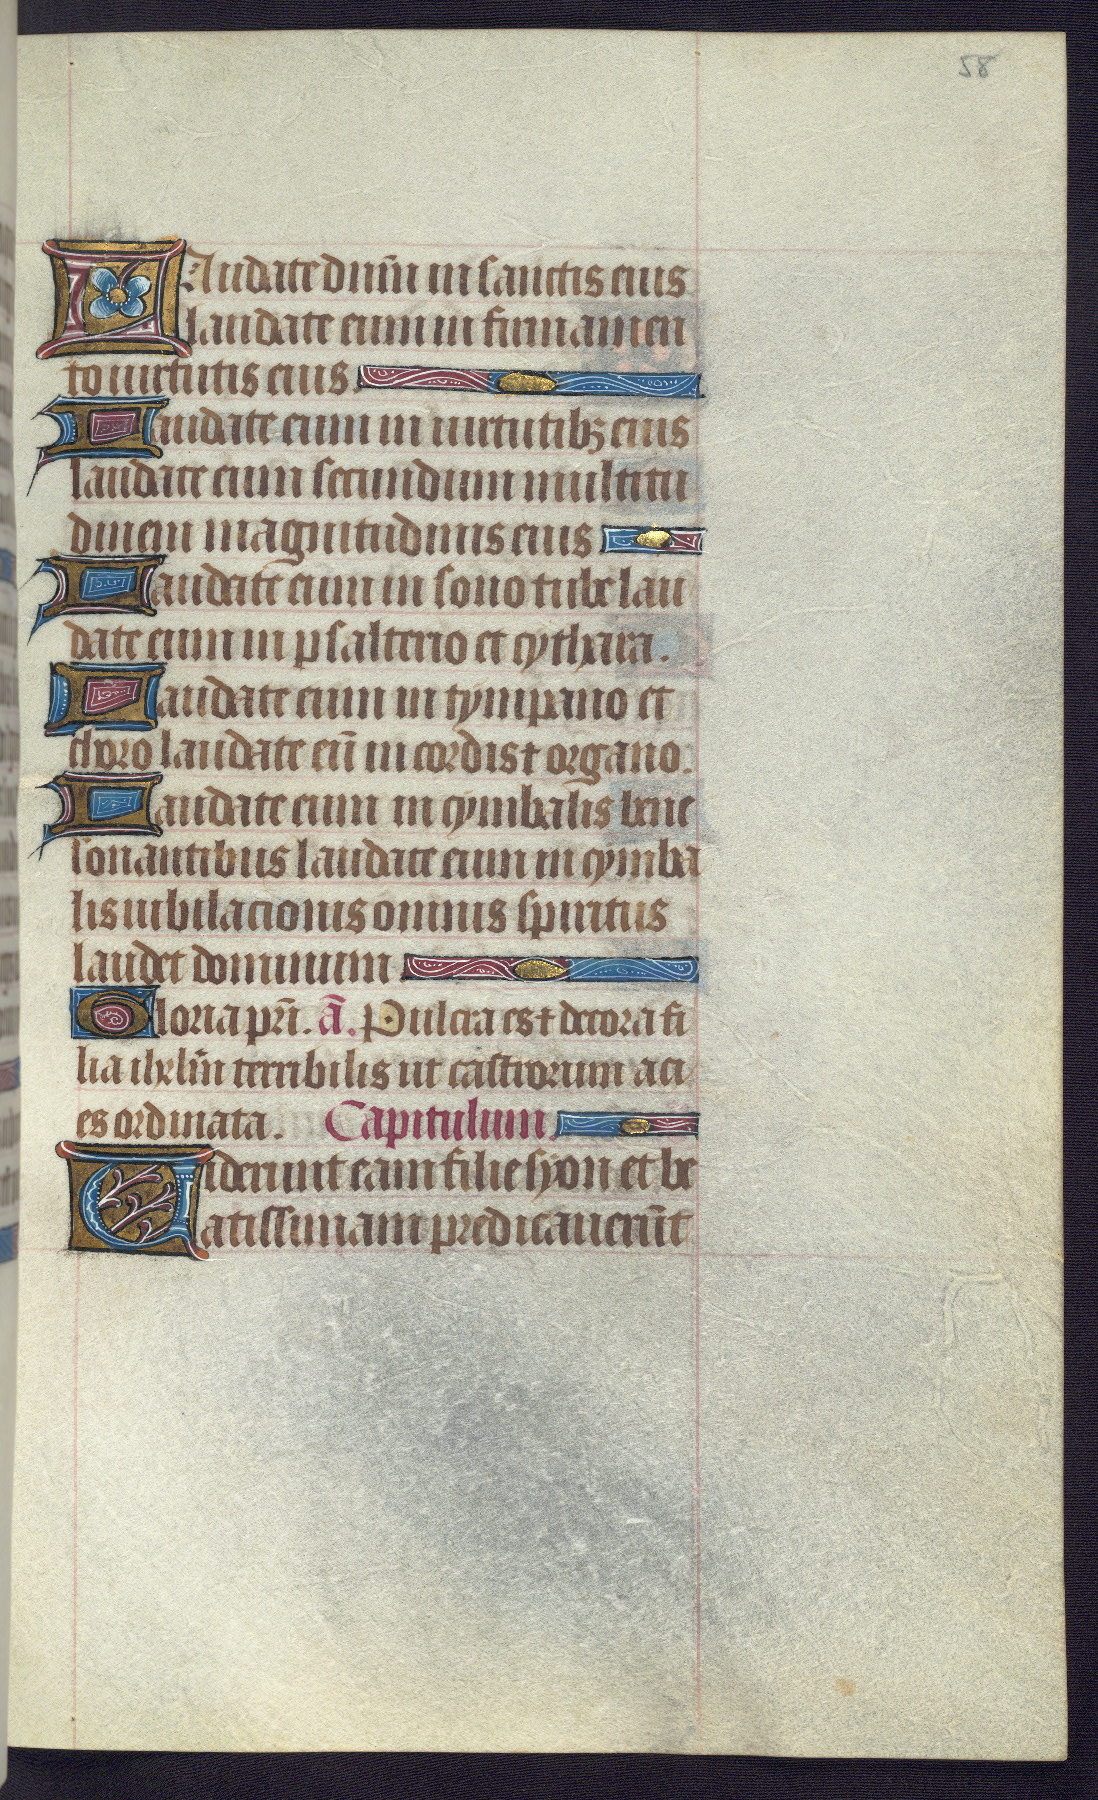 58
Laudate dnm̄ in sanctis eius
laudate eum in firmamen
to uirtutis eius.
Laudate eum in uirtutibꝫ eius
laudate eum secundum multitu
dinem magnitudinis eius
Laudate eum in sono tube lau
date eum in psalterio et cythara.
Laudate eum in tympano et
choro laudate eū in cordis ⁊ organo.
Laudate eum in cymbalis bene
sonantibus laudate eum in cymba
lis iubilacionis omnis spiritus
laudet dominum
Gloria pr̄i. ā. Pulcra es ⁊ decora fi
lia ihrl̄m terribilis ut castrorum aci
es ordinata. Capitulum.
Uiderunt eam filie syon et be
atissimam predicauerūt